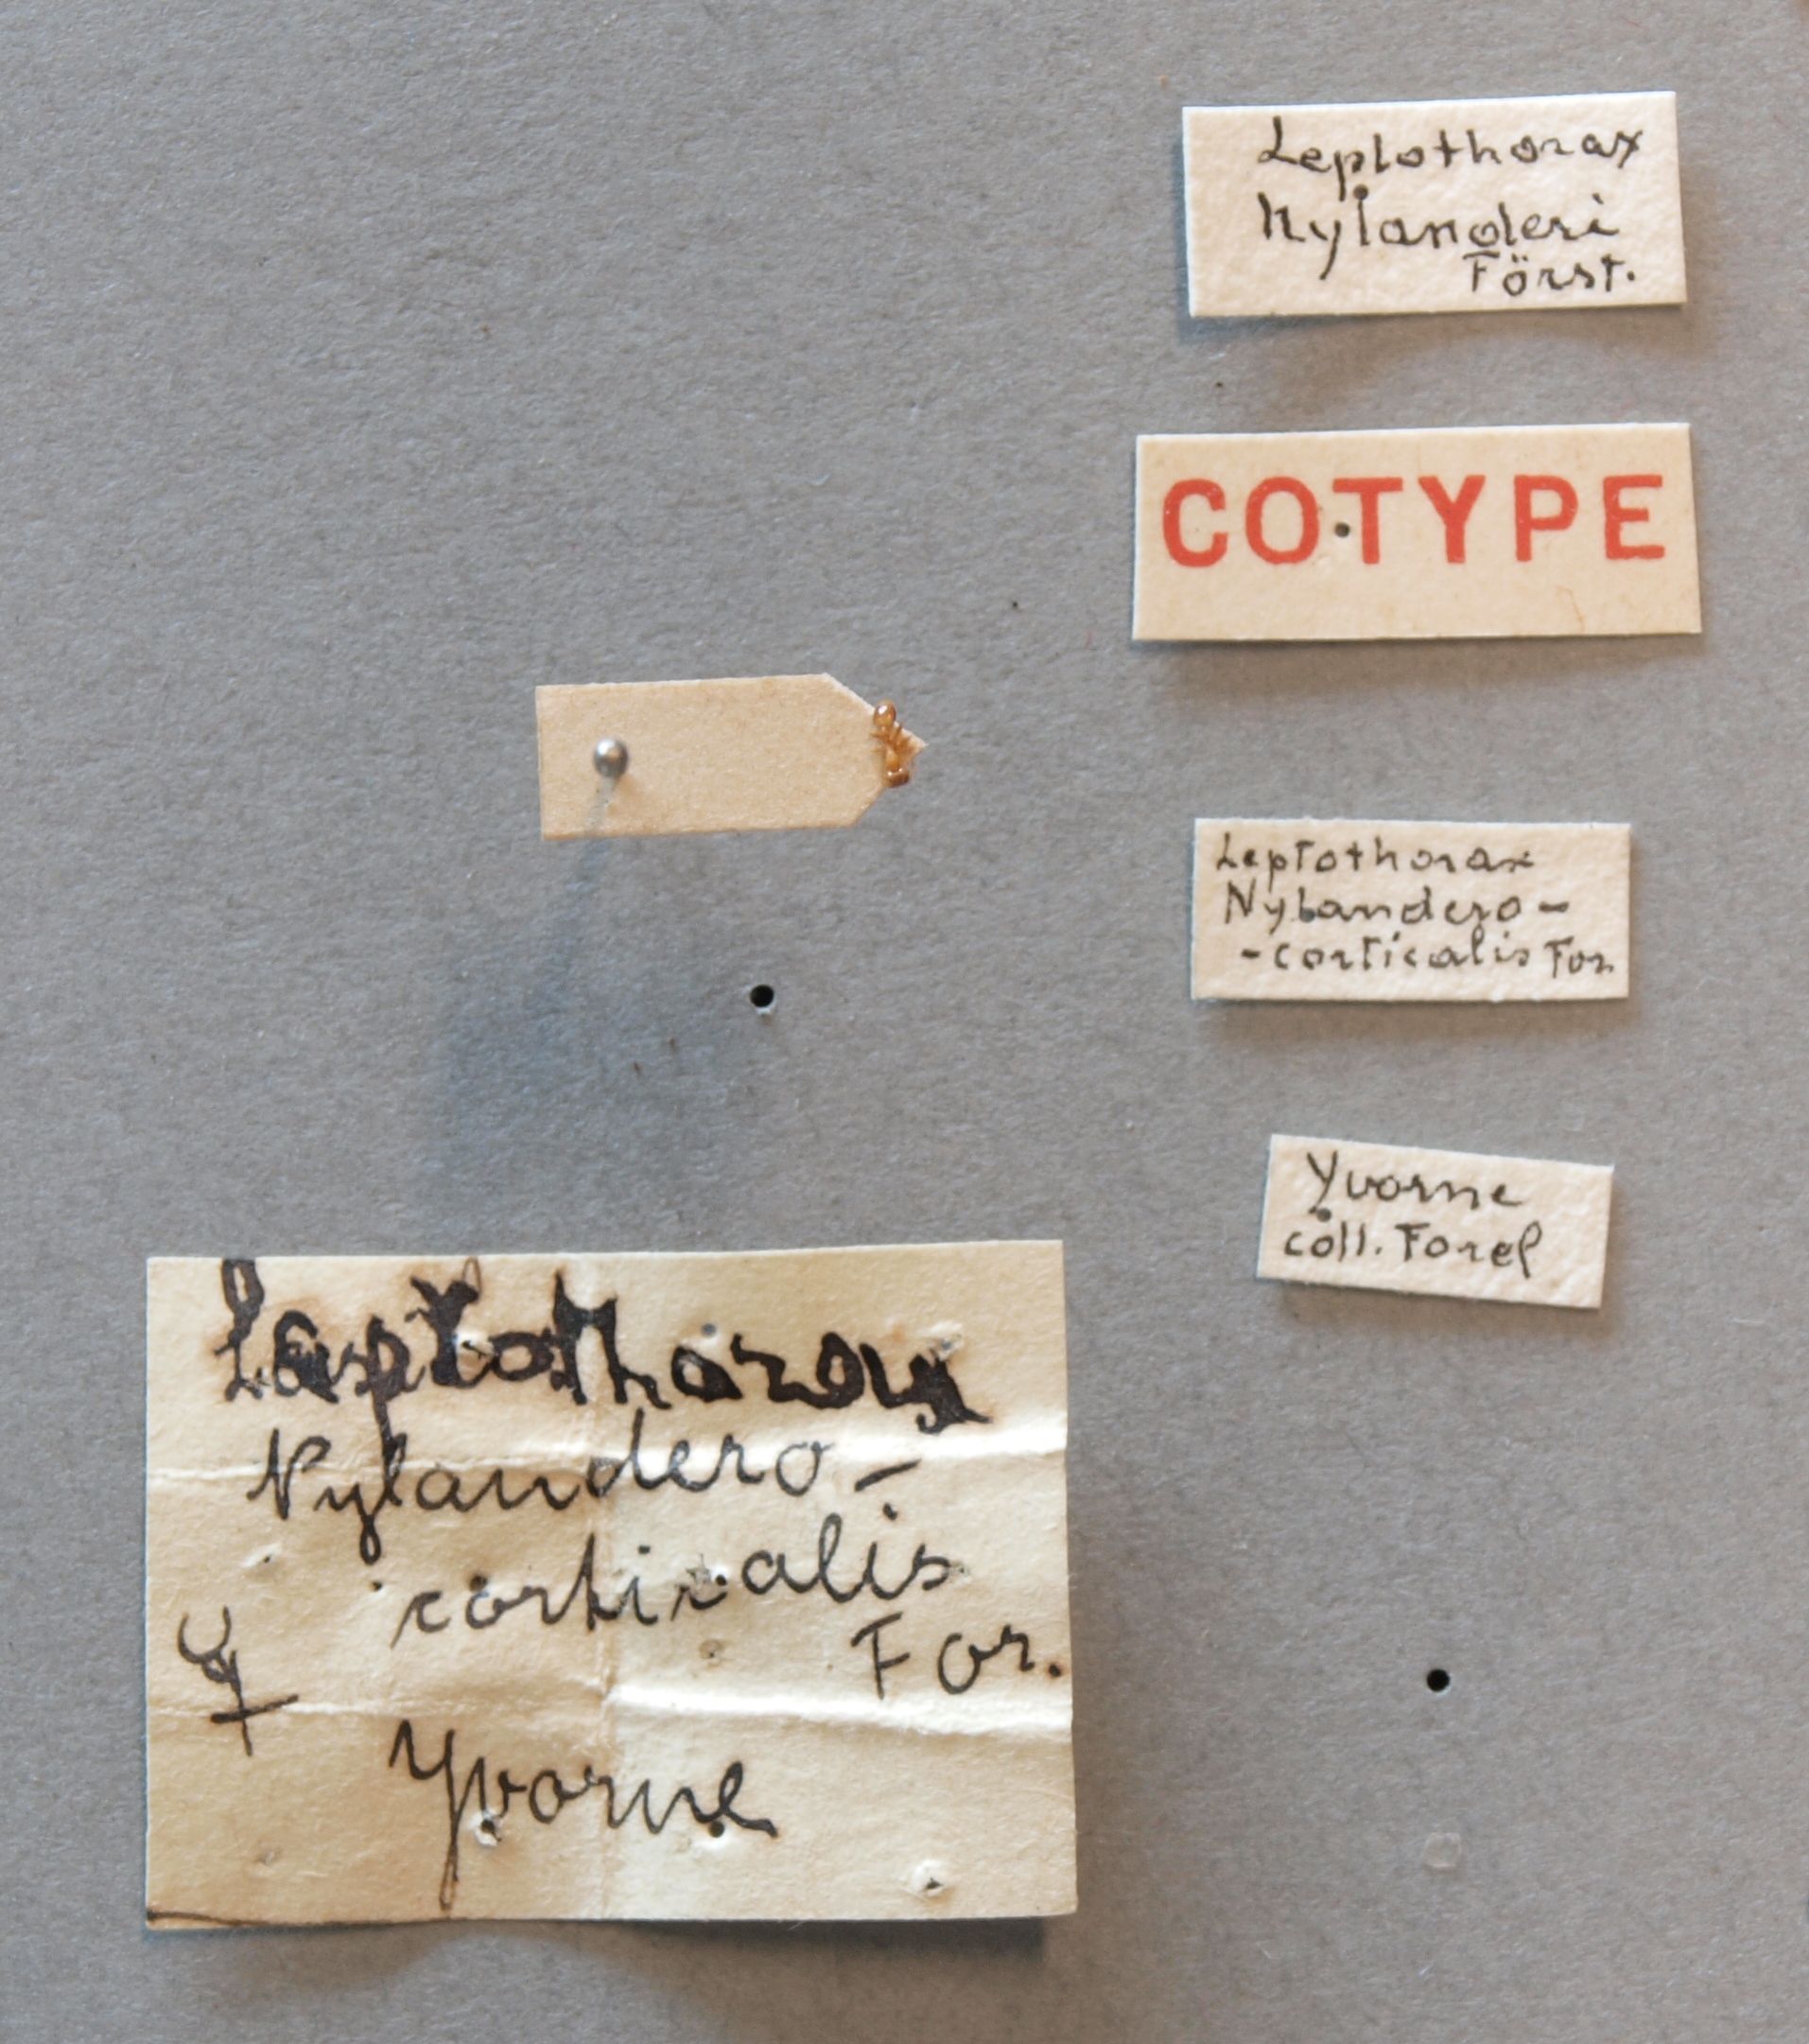 Leptothorax
Nylanderi
Först.
COTYPE
Leptothorax
Nylandero-
-corticalis For
Yvorne
coll. Forel
Leptothorax
Nylandero-
corticalis
For.
☿
Yvorne